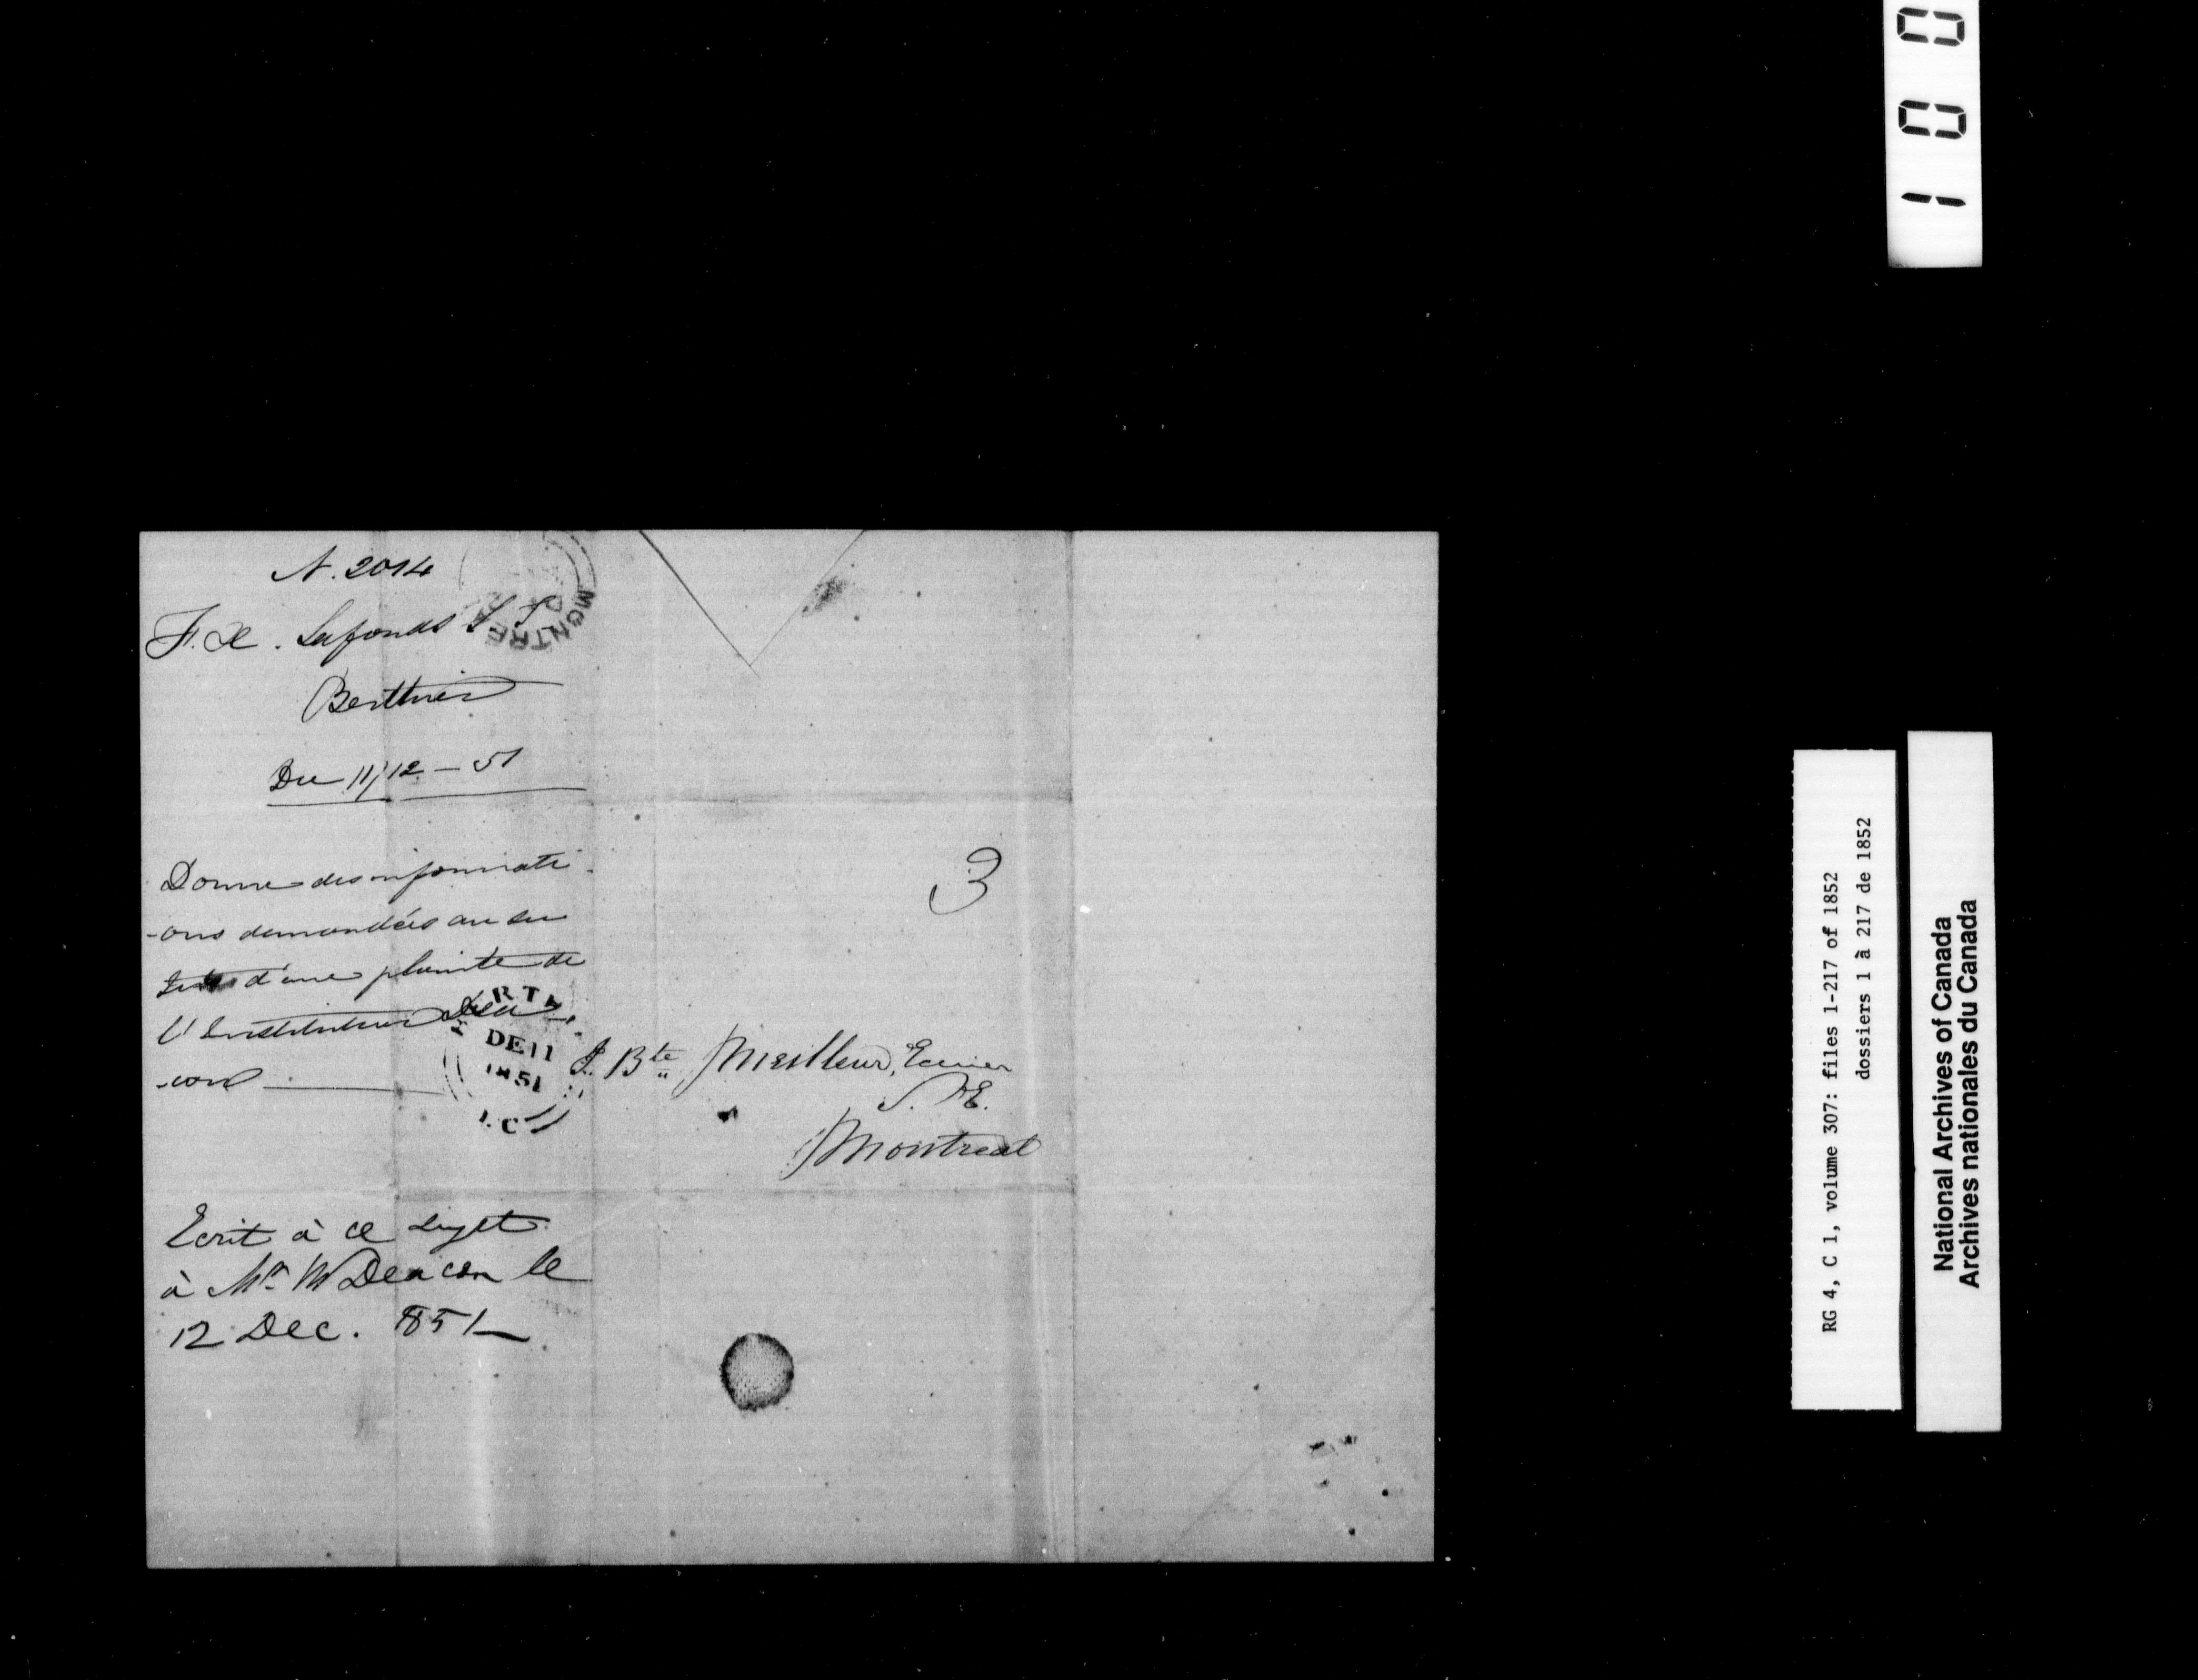 N. 2014
F. X. Lafonds S. T.
Berthier
Du 11/12 — 51
Donne des informati
-ons demandées au su
jet d'une plainte de
l'Instituteur Dea
-con
Ecrit à ce sujet
à Mr. W Deacon le
12 Dec. 851
MONTREAL
DE 11
1851
L.C
3
J. Bte Meilleur, Ecuier
S. E.
Montreal
1 0 0
RG 4, C 1, volume 307: files 1-217 of 1852
dossiers 1 à 217 de 1852
National Archives of Canada
Archives nationales du Canada